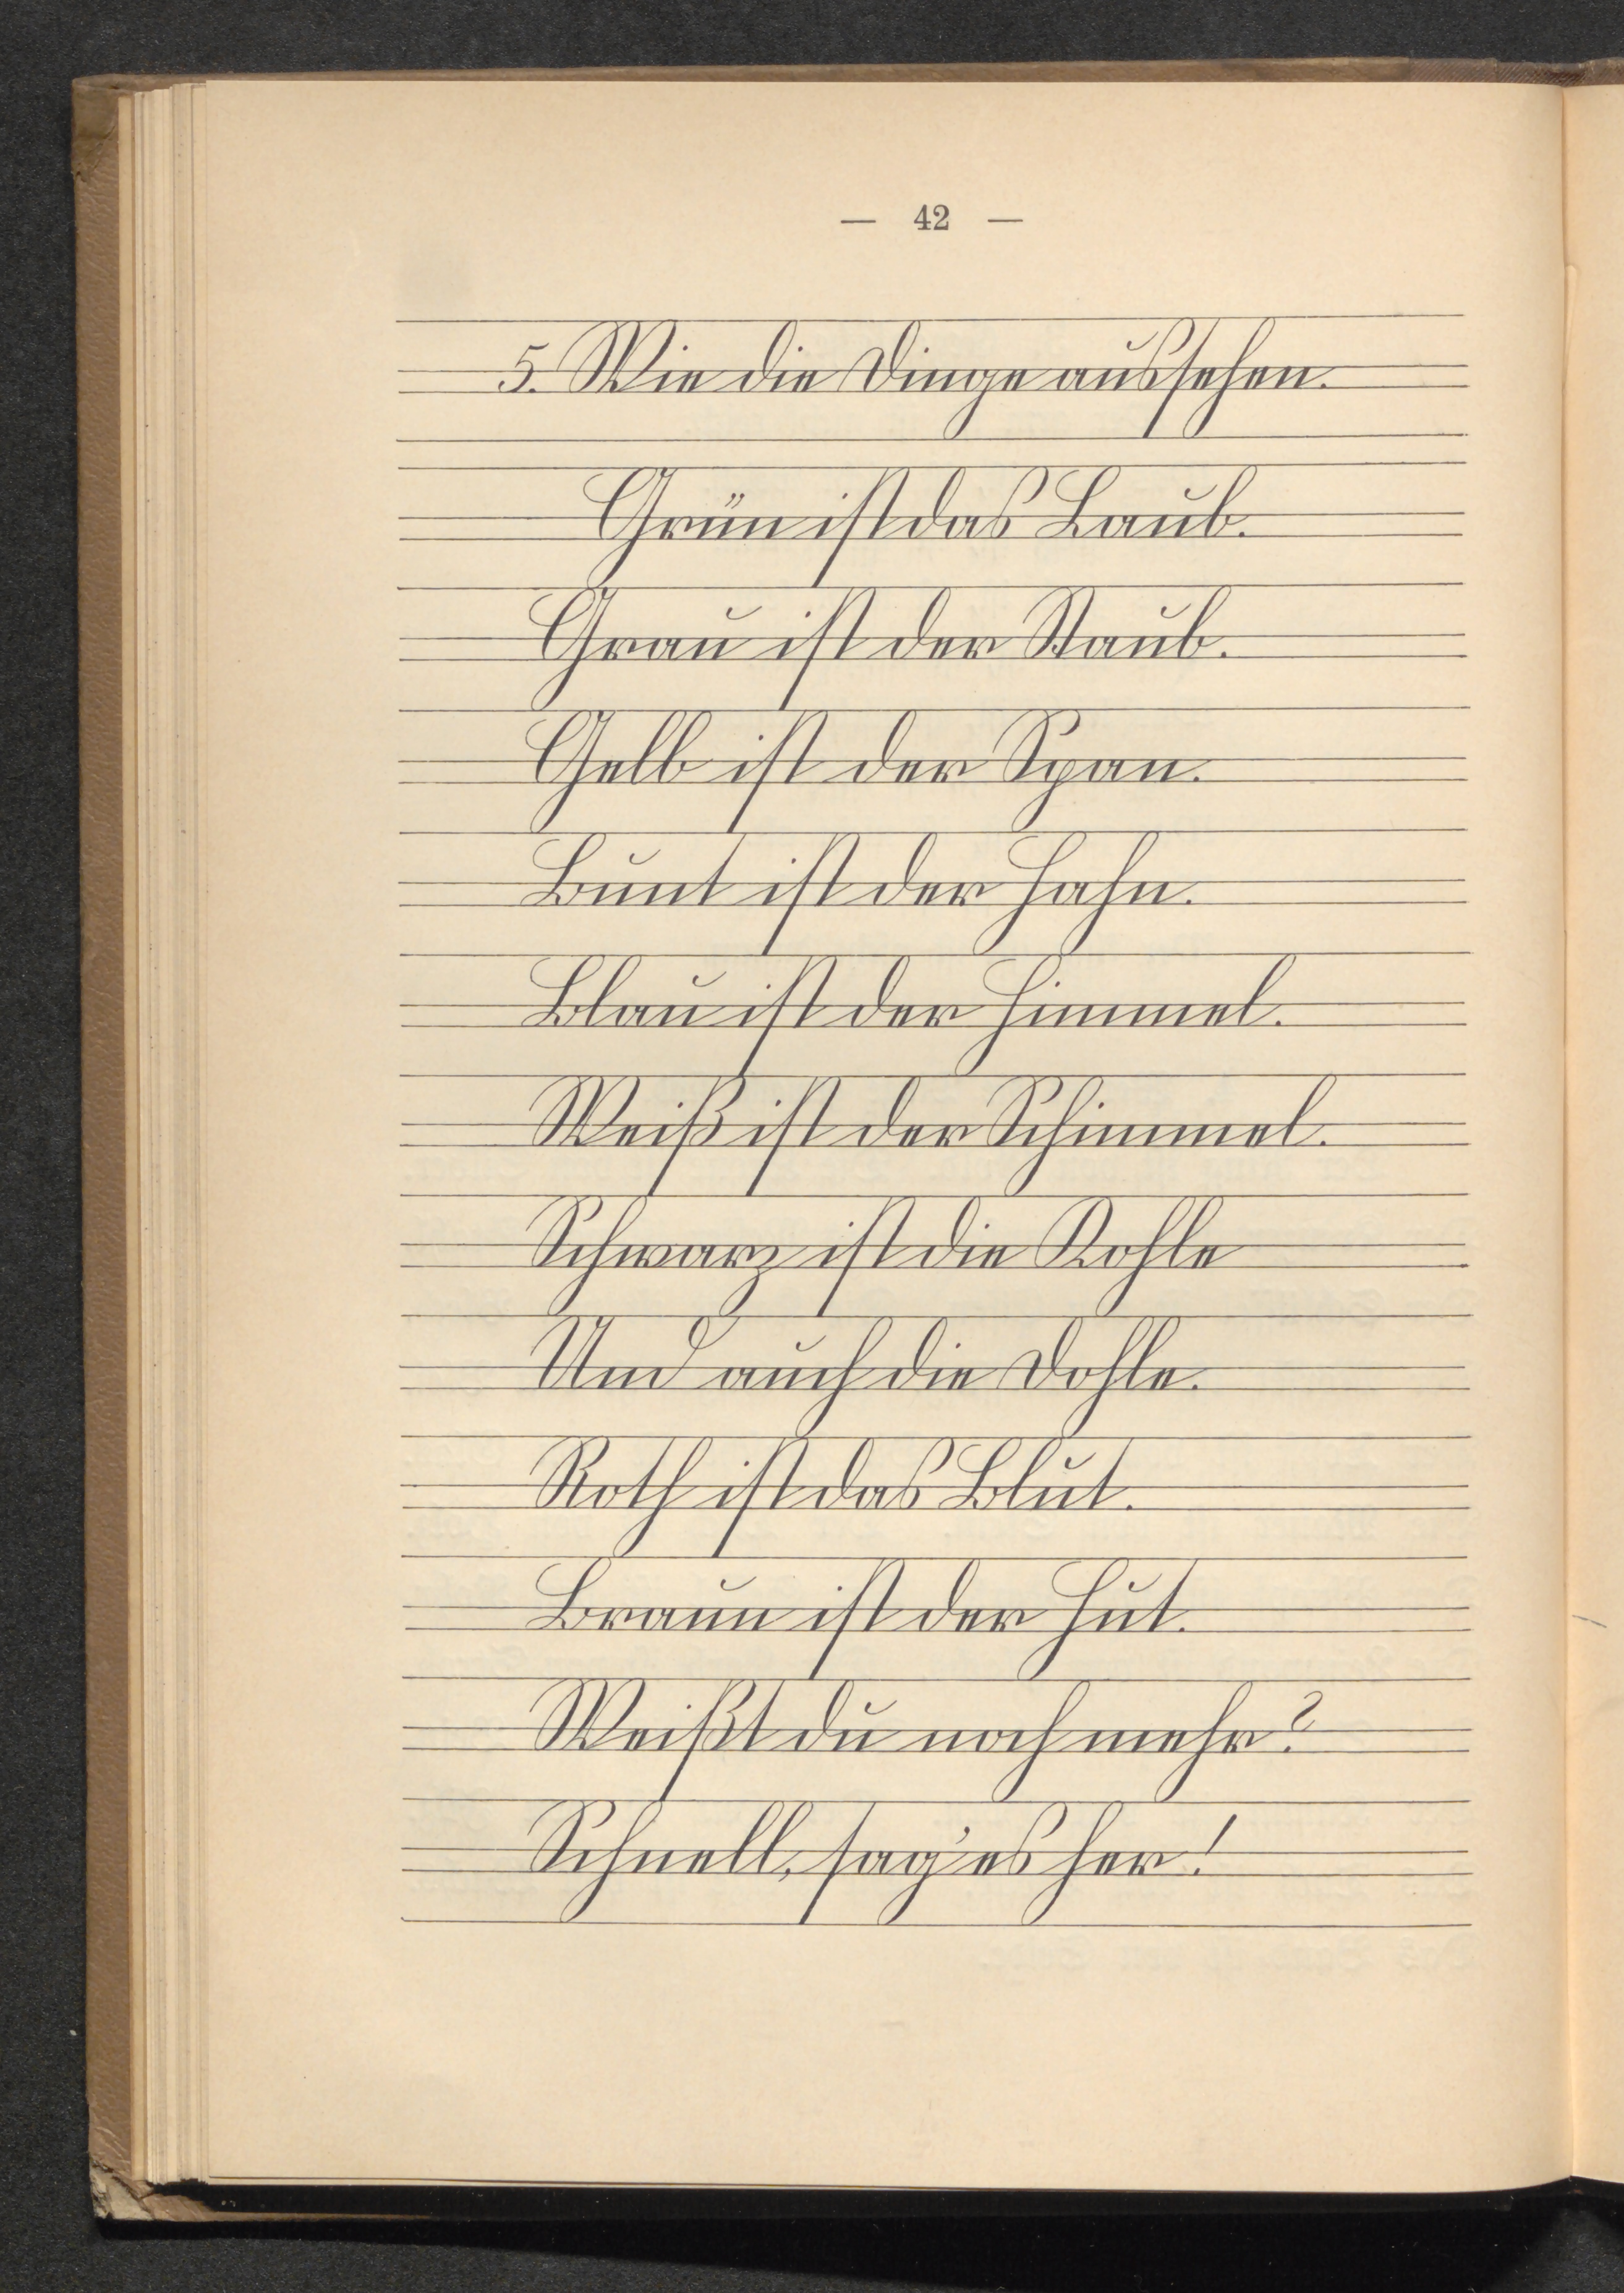 — 42 —
5. Wie die Dinge aussehen.
Grün ist das Laub.
Grau ist der Staub.
Gelb ist der Span.
Bunt ist der Hahn.
Blau ist der Himmel.
Weiß ist der Schimmel.
Schwarz ist die Kohle
Und auch die Dohle.
Roth ist das Blut.
Braun ist der Hut.
Weißt du noch mehr?
Schnell, sag' es her!